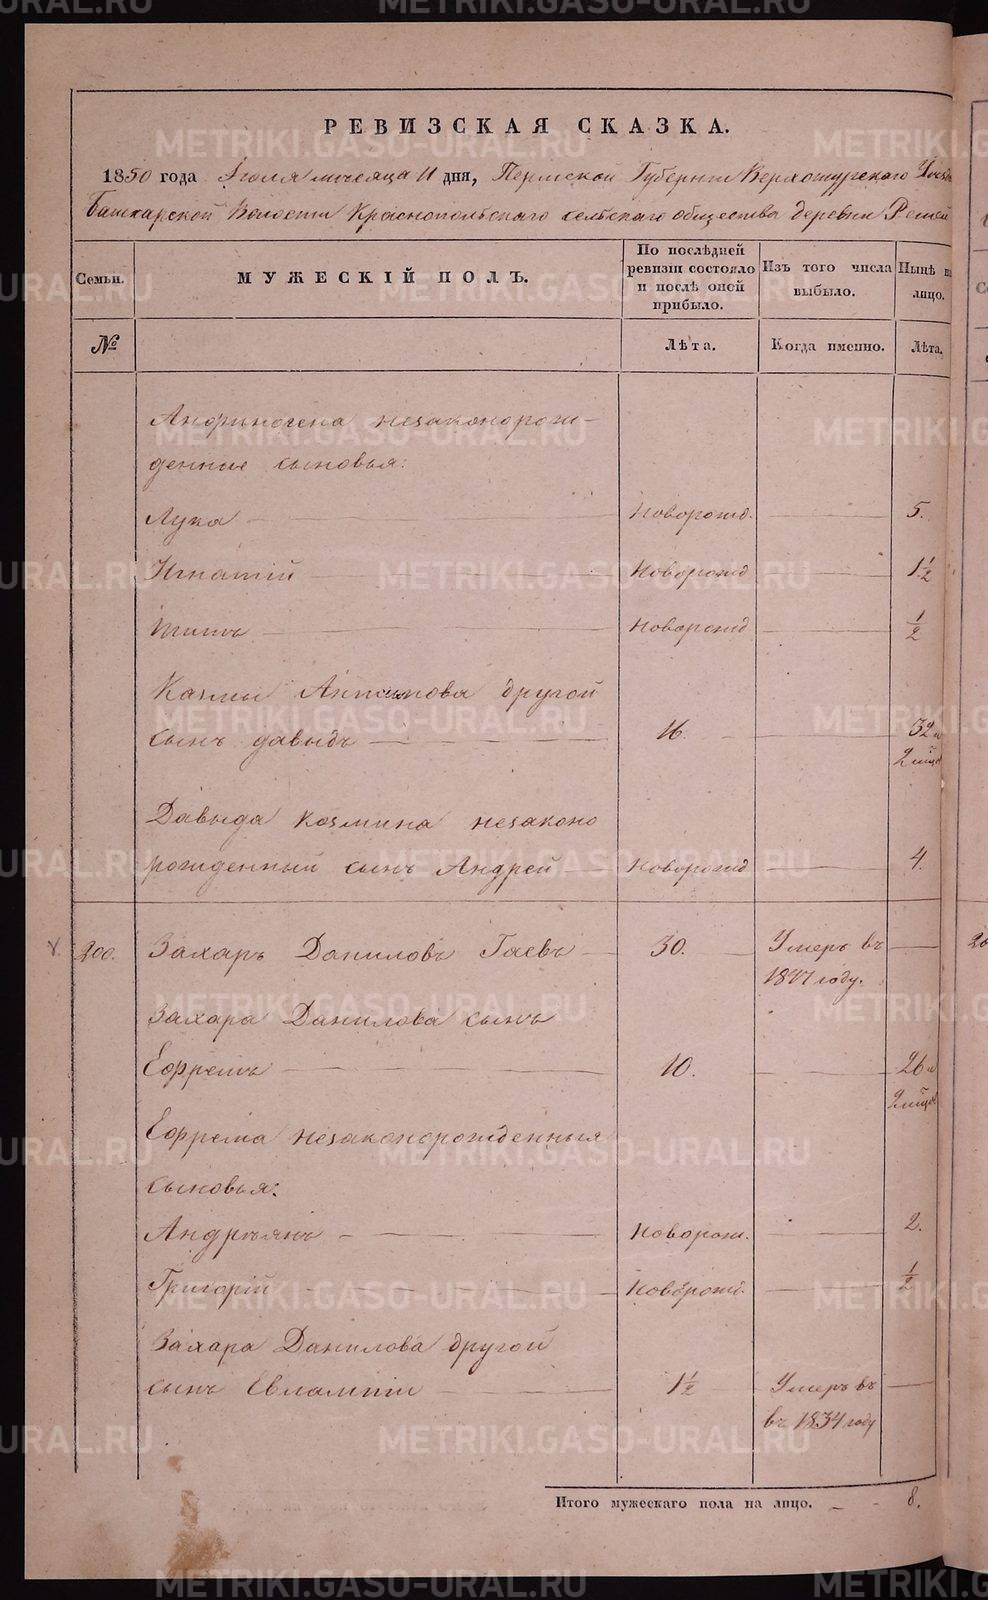 РЕВИЗСКАЯ СКАЗКА.
1850 года Июля месяца 11 дня, Пермской Губернии Верхотурского
Башкарской Волости Краснопольского сельского общества деревни
Семьи.
МУЖЕСКІЙ ПОЛЪ.
По послѣдней ревизіи состояло и послѣ оной прибыло.
Изъ того числа выбыло.
Нынѣ на лицо.
№
Лѣта.
Когда именно.
Лѣта.
незаконорож-
денные сыновья:
Лука Новорожд. 5.
Игнатій Новорожд 1½
Титъ Новорожд ½
Козмы Антипова другой
сынъ давыдъ 16. 32 и
Давыда Козмина незаконо
рожденный сынъ Андрей Новорожд 4.
200. Захаръ Даниловъ Гаевъ 30. Умеръ въ
1847 году.
Захара Данилова сынъ
Ефремъ 10. 26 и
Ефрема незаконорожденныя
сыновья:
Андреянъ Новорож. 2.
Григорій Новорожд. ½
Захара Данилова другой
сынъ Евлампій 1½ Умеръ въ
въ 1834 году
Итого мужескаго пола на лицо. 8.
METRIKI.GASO-URAL.RU